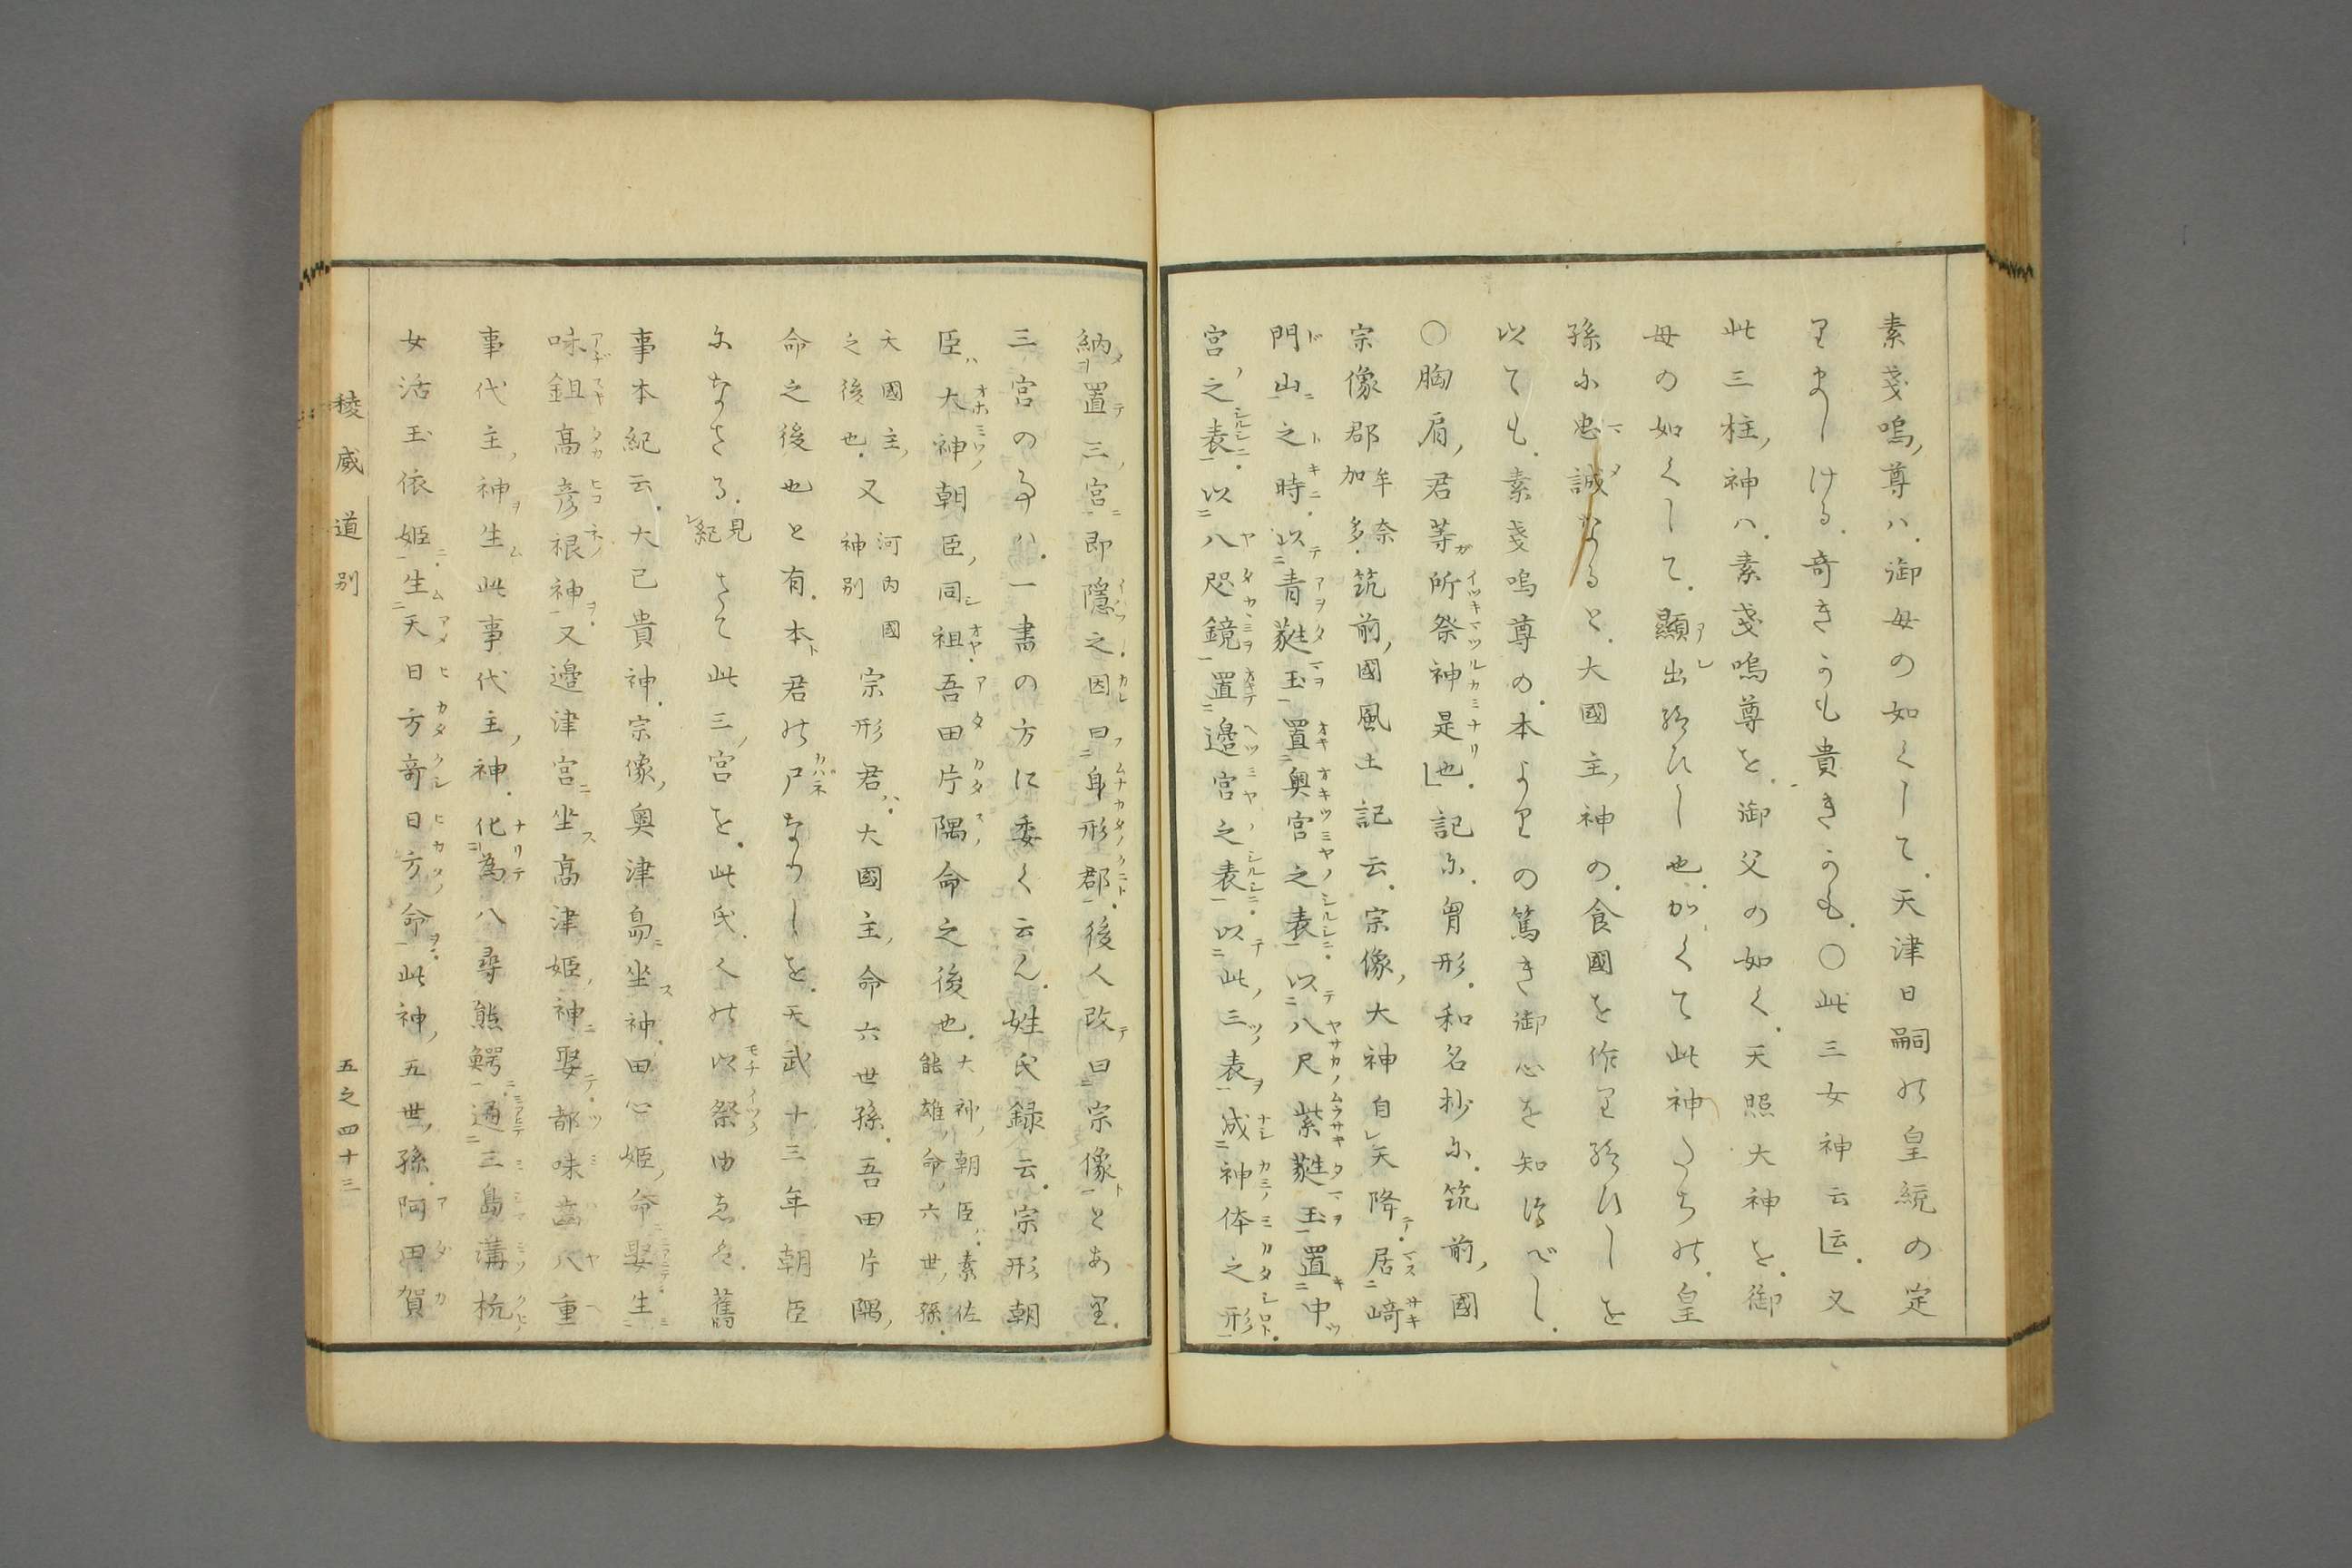 素戔嗚尊ハ御母の如くして天津日嗣の皇統の定
りましける奇きうも貴きうも○此三女神云云又
此三柱神ハ素戔嗚尊を御父の如く天照大神を御
母の如くして顯出給ひし也かくて此神たちの皇
孫に忠誠なると大國主神の食國を作り給ひしを
以ても素戔嗚尊の本よりの篤き御心を知べし
○胸肩君等所祭神是也記に胷形和名抄に筑前國
宗像郡牟奈加多筑前國風土記云宗像大神自天降居﨑
門山之時以青蕤玉置奥宮之表以八尺紫蕤玉置中
宮之表以八咫鏡置邊宮之表以此三表成神体之形
納置三宮即隱之因曰身形郡後人改曰宗像とあり
三宮の事ハ一書の方に委く云ん姓氏録云宗形朝
臣大神朝臣同祖吾田片隅命之後也大神朝臣ハ素佐能雄命六世孫
大國主之後也又河内國神別宗形君ハ大國主命六世孫吾田片隅
命之後也と有本君の尸なりしを天武十三年朝臣
になさる見紀さて此三宮を此氏人の以祭ゆゑは舊
事本紀云大己貴神宗像奥津島坐神田心姫命娶生
味鉏高彦根神又邊津宮坐高津姫神娶都味齒八重
事代主神生此事代主神化為八尋熊鰐通三島溝杭
女活玉依姫生天日方奇日方命此神五世孫阿田賀
稜威道別
五之四十三